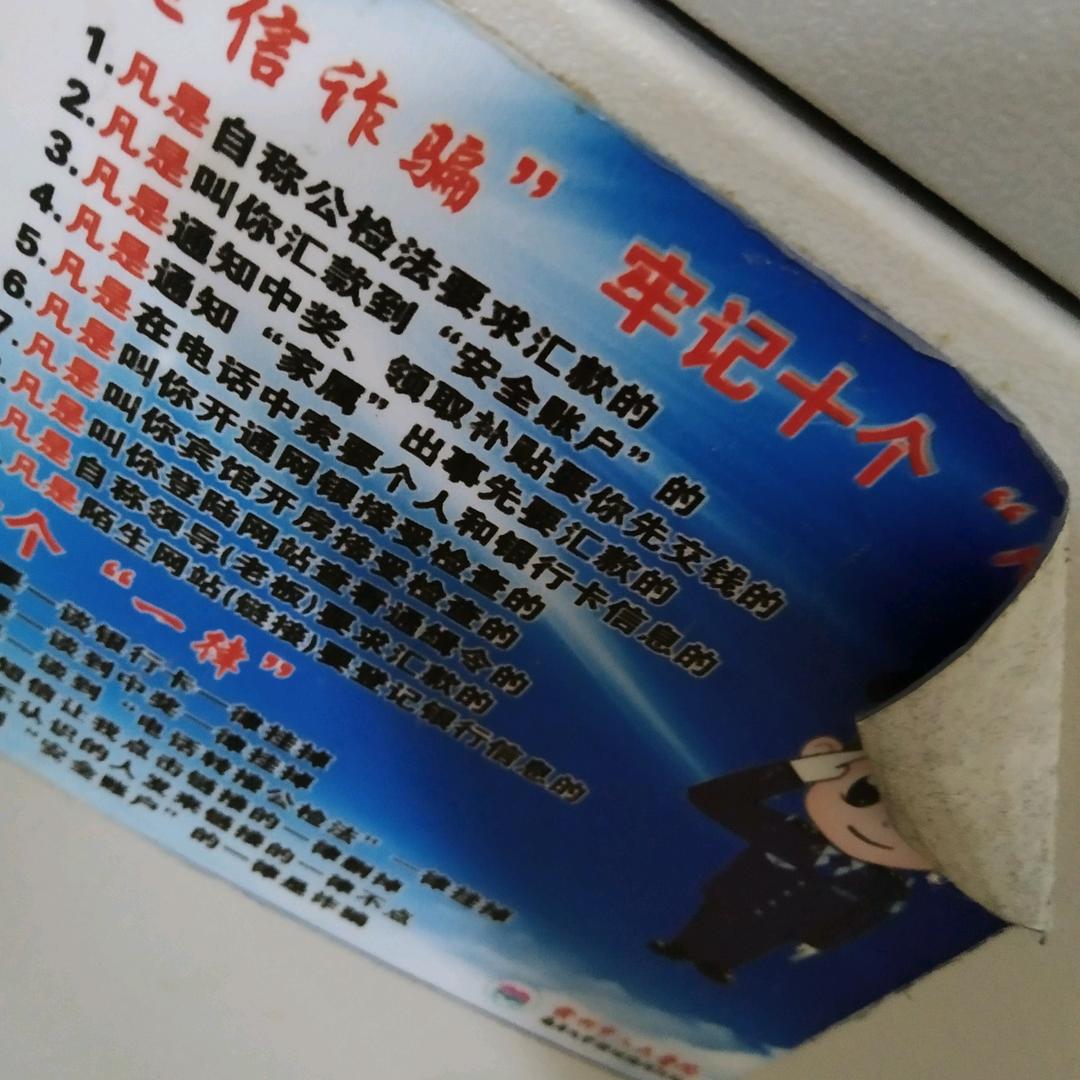 信诈骗” 牢记十个“
1.凡是自称公检法要求汇款的
2.凡是叫你汇款到“安全账户”的
3.凡是通知中奖、领取补贴要你先交钱的
4.凡是通知“家属”出事先要汇款的
5.凡是在电话中索要个人和银行卡信息的
6.凡是叫你开通网银接受检查的
7.凡是叫你宾馆开房接受检查的
凡是叫你登陆网站查看通缉令的
凡是自称领导(老板)要求汇款的
凡是陌生网站(链接)要登记银行信息的
个“一律”
一谈银行卡一律挂掉
一谈到中奖一律挂掉
一谈到“电话转接公检法”一律挂掉
短信让我点击链接的一律删掉
不认识的人发来链接的一律不点
“安全账户”的一律是诈骗